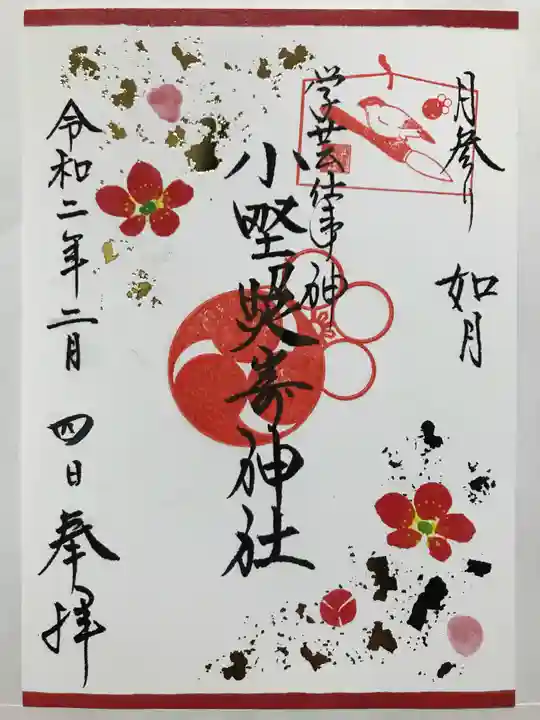 月参り
如月
学芸仕事神
小野照崎神社
令和二年二月
四日奉拝